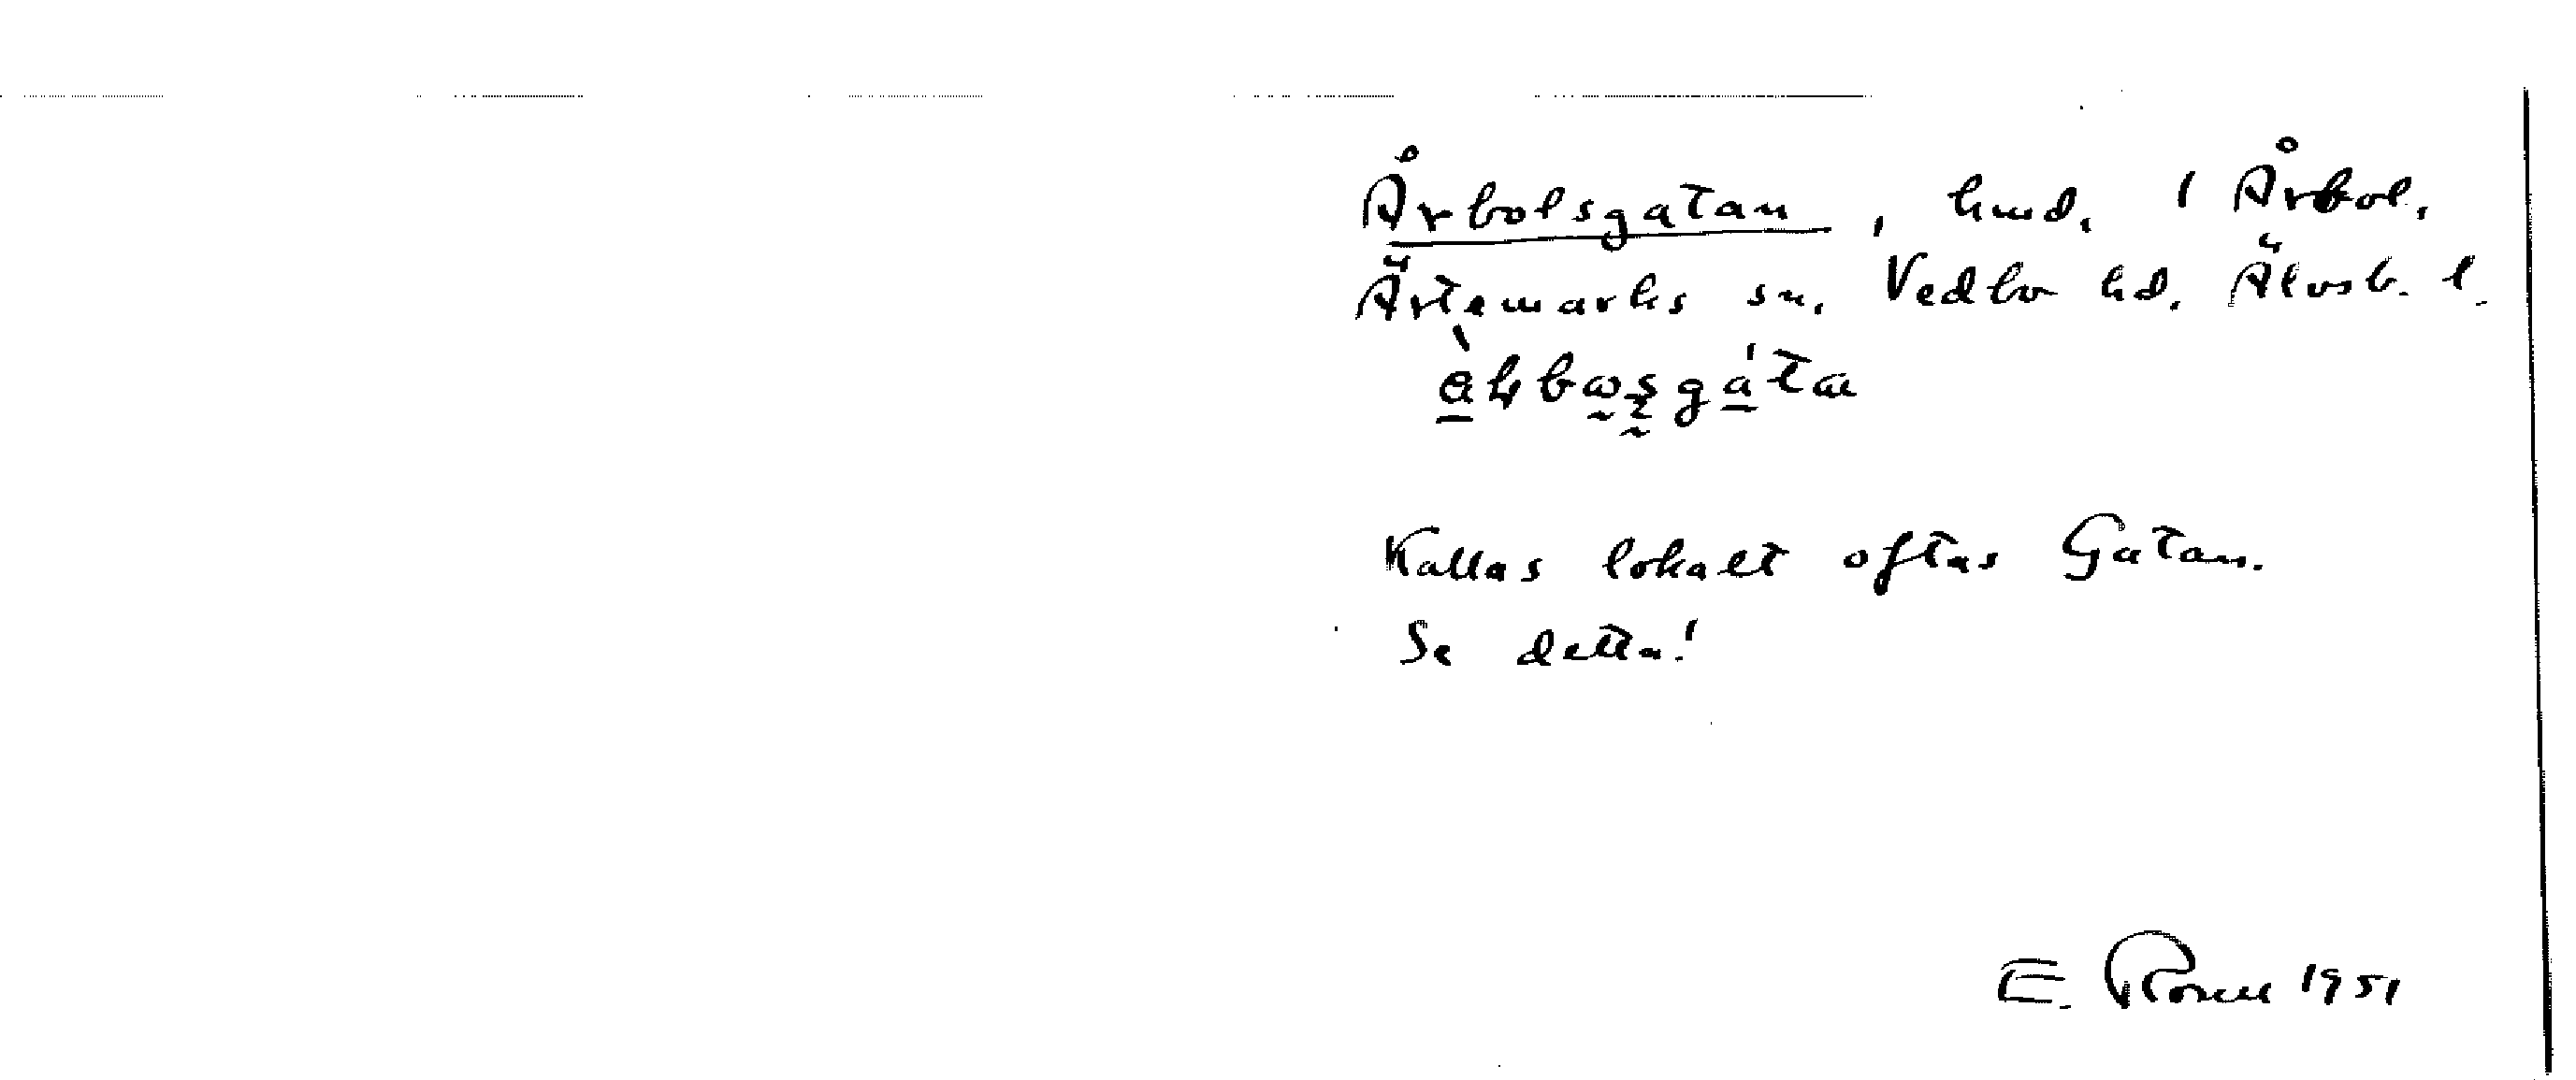 Årbolsgatan, hmd. i Årbol,
Ärtemarks sn. Vedbo hd. Älvsb. l.
Kallas lokalt oftas Gatan.
Se detta!
E. 1951